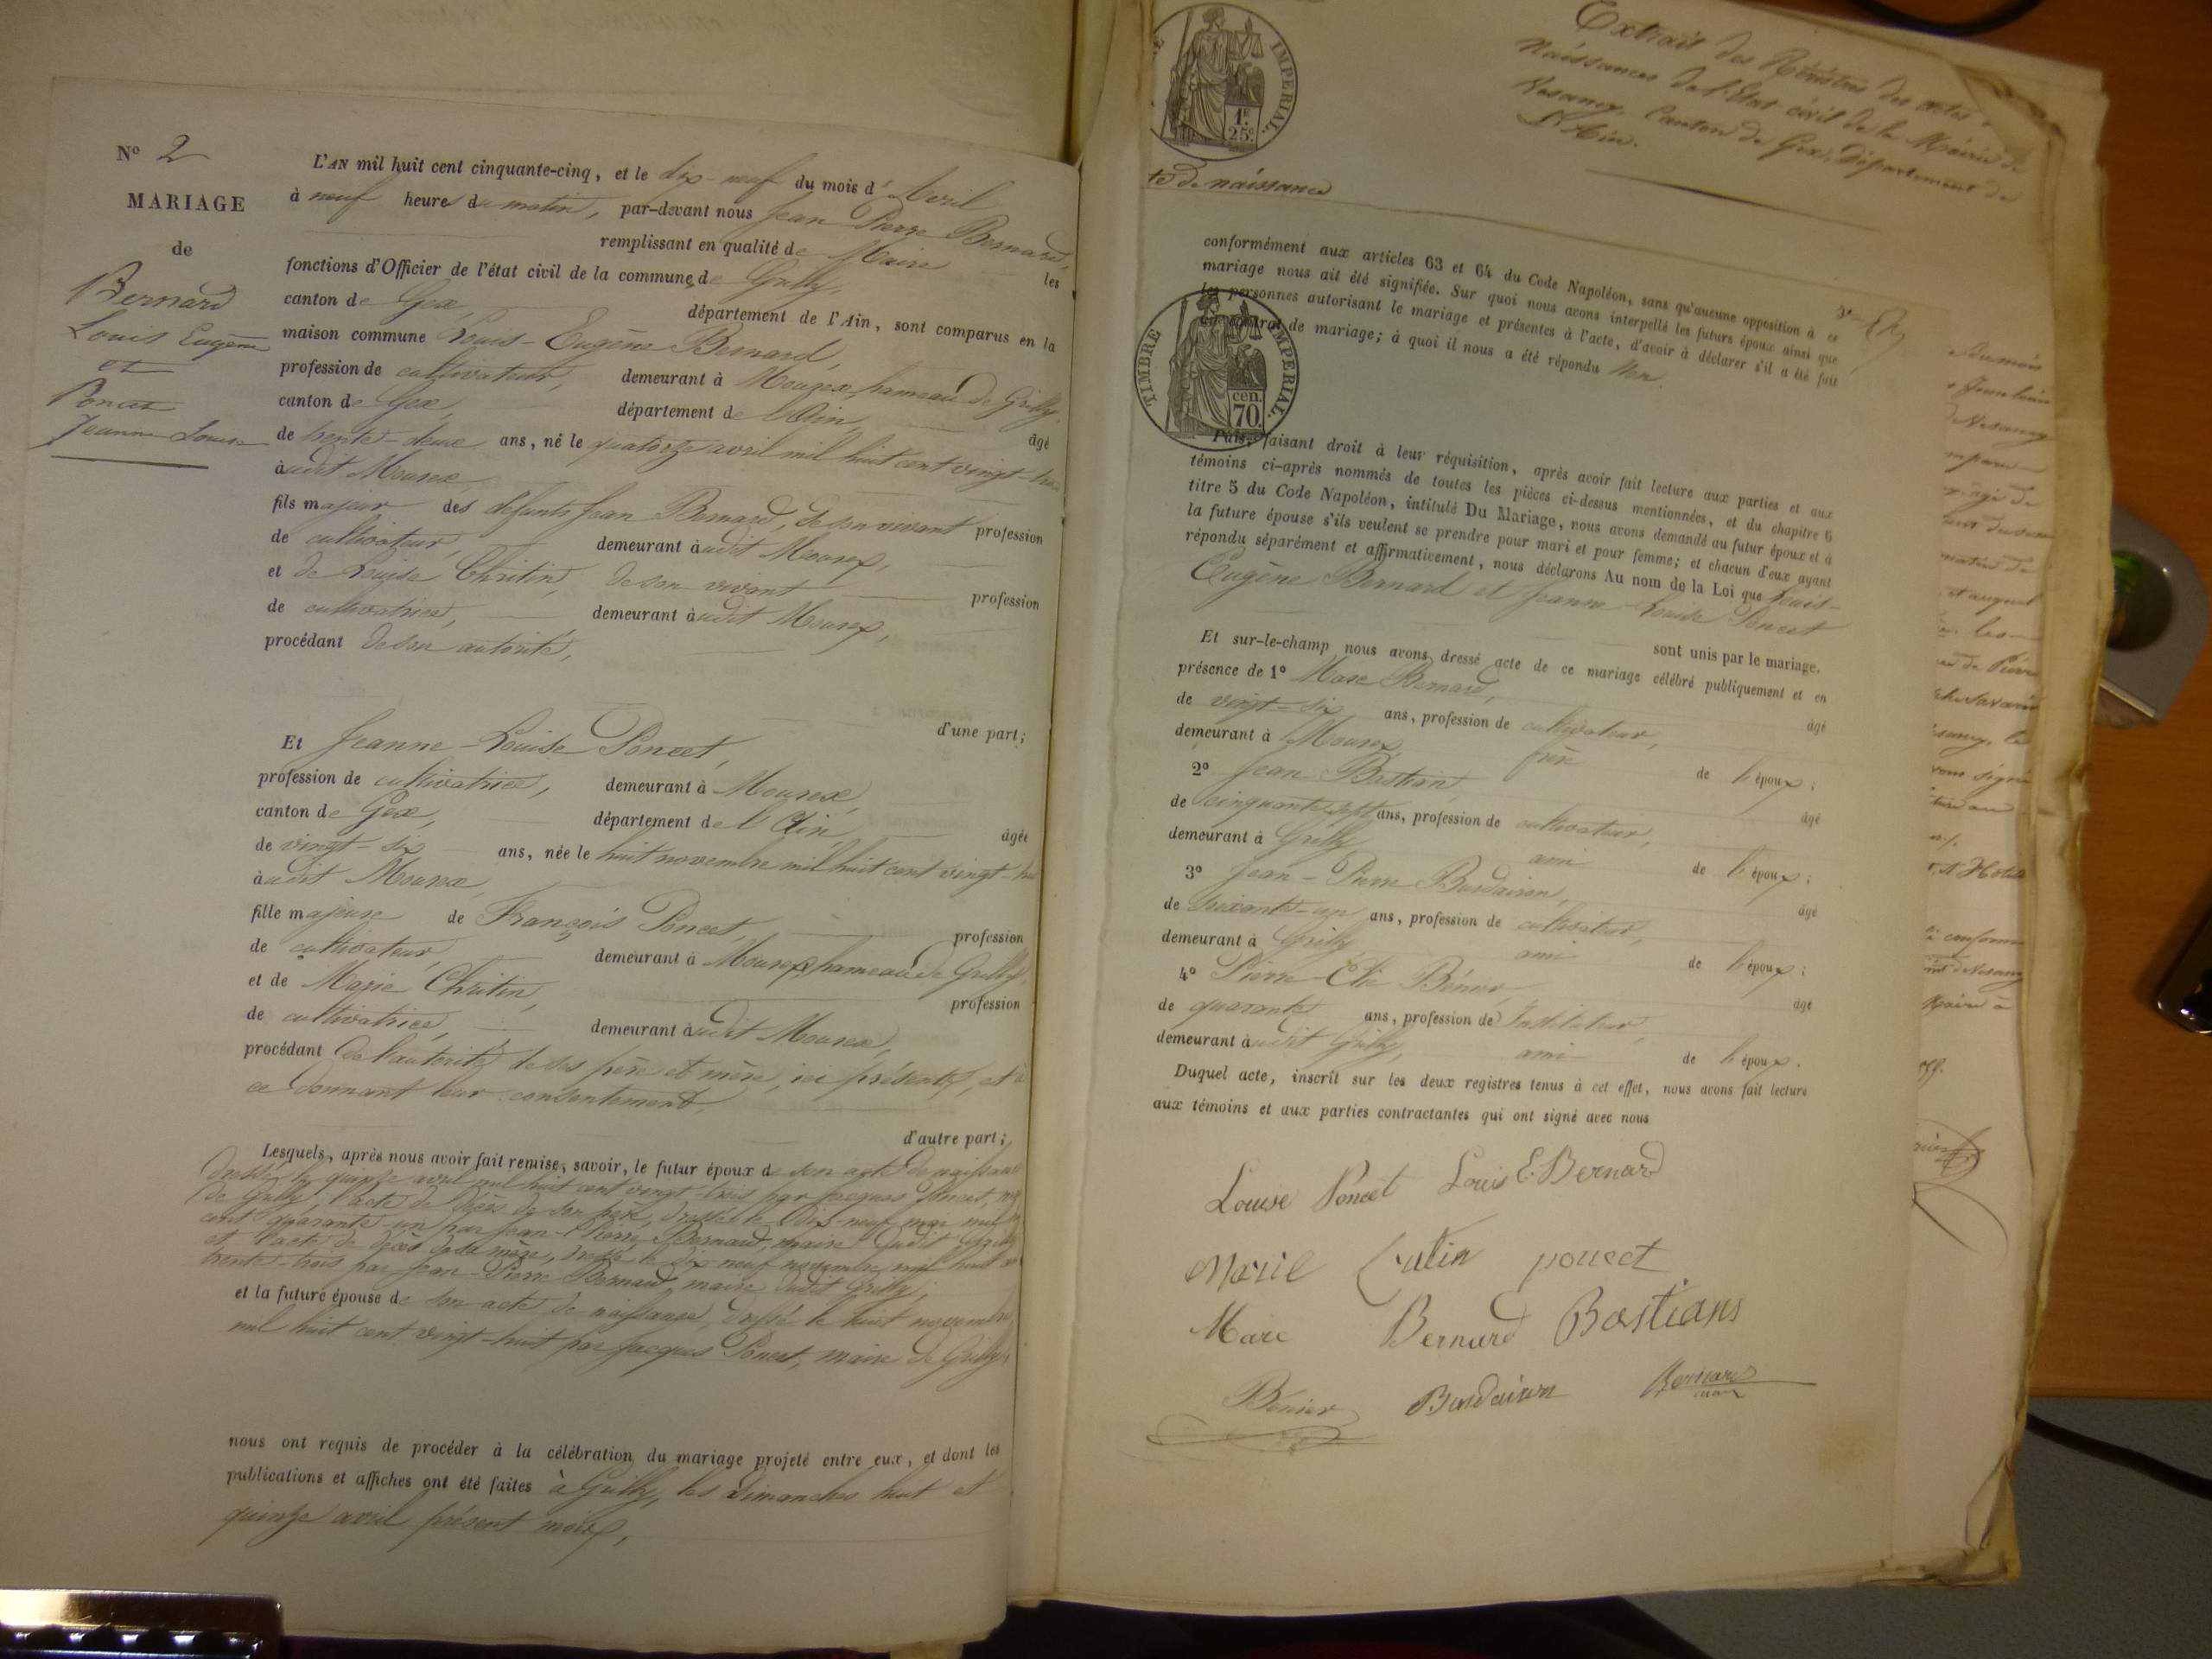 N° 2
MARIAGE
de
Bernard
Louis Eugène
et
Poncet
Jeanne Louise
L'AN mil huit cent cinquante-cinq, et le dix-neuf du mois d'Avril
à neuf heures du matin, par-devant nous Jean Pierre Bernard,
remplissant en qualité de Maire les
fonctions d'Officier de l'état civil de la commune de Grilly,
canton de Gex, département de l'Ain, sont comparus en la
maison commune Louis-Eugène Bernard,
profession de cultivateur, demeurant à Mourex, hameau de Grilly,
canton de Gex, département de l'Ain, âgé
de trente-deux ans, né le quatorze avril mil huit cent vingt-trois
audit Mourex,
fils majeur des défunts Jean Bernard, de son vivant profession
de cultivateur, demeurant audit Mourex,
et de Louise Chritin, de son vivant profession
de cultivatrice, demeurant audit Mourex,
procédant de son autorité,
d'une part;
Et Jeanne-Louise Poncet,
profession de cultivatrice, demeurant à Mourex,
canton de Gex, département de l'Ain, âgée
de vingt-six ans, née le huit novembre mil huit cent vingt-huit
audit Mourex,
fille majeure de François Poncet, profession
de cultivateur, demeurant à Mourex, hameau de Grilly,
et de Marie Chritin, profession
de cultivatrice, demeurant audit Mourex,
procédant de l'autorité de ses père et mère, ici présents, et à
ce donnant leur consentement
d'autre part;
Lesquels, après nous avoir fait remise, savoir, le futur époux de son acte de naissance
dressé le quinze avril mil huit cent vingt-trois par Jacques Poncet,
de Grilly, l'acte de décès de son père, dressé le dix-neuf mai mil
cent quarante-un par Jean-Pierre Bernard, maire dudit Grilly
et l'acte de décès de sa mère, dressé le dix-neuf novembre mil huit cent
trente-trois par Jean-Pierre Bernard, maire dudit Grilly,
et la future épouse de son acte de naissance, dressé le huit novembre
mil huit cent vingt-huit par Jacques Poncet, maire de Grilly,
nous ont requis de procéder à la célébration du mariage projeté entre eux, et dont les
publications et affiches ont été faites à Grilly, les dimanches huit et
quinze avril présent mois,
Extrait des Régistres des actes de
naissances de l'Etat civil de la Mairie de
Vesancy, Canton de Gex, Département de
l'Ain.
IMPERIAL.
1F.
25c.
te de naissance
conformément aux articles 63 et 64 du Code Napoléon, sans qu'aucune opposition à ce
mariage nous ait été signifiée. Sur quoi nous avons interpellé les futurs époux ainsi que
les personnes autorisant le mariage et présentes à l'acte, d'avoir à déclarer s'il a été fait
un contrat de mariage; à quoi il nous a été répondu Non.
TIMBRE IMPERIAL.
cen.
70.
Puis, faisant droit à leur réquisition, après avoir fait lecture aux parties et aux
témoins ci-après nommés de toutes les pièces ci-dessus mentionnées, et du chapitre 6
titre 5 du Code Napoléon, intitulé Du Mariage, nous avons demandé au futur époux et à
la future épouse s'ils veulent se prendre pour mari et pour femme; et chacun d'eux ayant
répondu séparément et affirmativement, nous déclarons Au nom de la Loi que Louis-
Eugène Bernard et Jeanne Louise Poncet
sont unis par le mariage.
Et sur-le-champ nous avons dressé acte de ce mariage célébré publiquement et en
présence de 1° Marc Bernard, âgé
de vingt-six ans, profession de cultivateur,
demeurant à Mourex, frère de l'époux;
2° Jean Bastian, âgé
de cinquante-sept ans, profession de cultivateur,
demeurant à Grilly, ami de l'époux;
3° Jean-Pierre Burdairon, âgé
de soixante-un ans, profession de cultivateur,
demeurant à Grilly, ami de l'époux;
4° Pierre-Elie Bénier, âgé
de quarante ans, profession de Instituteur,
demeurant audit Grilly, ami de l'époux.
Duquel acte, inscrit sur les deux registres tenus à cet effet, nous avons fait lecture
aux témoins et aux parties contractantes qui ont signé avec nous
Louise Poncet Louis E. Bernard
Marie Cutin poncet
Marc Bernard Bastians
Bénier Burdairon Bernard
maire